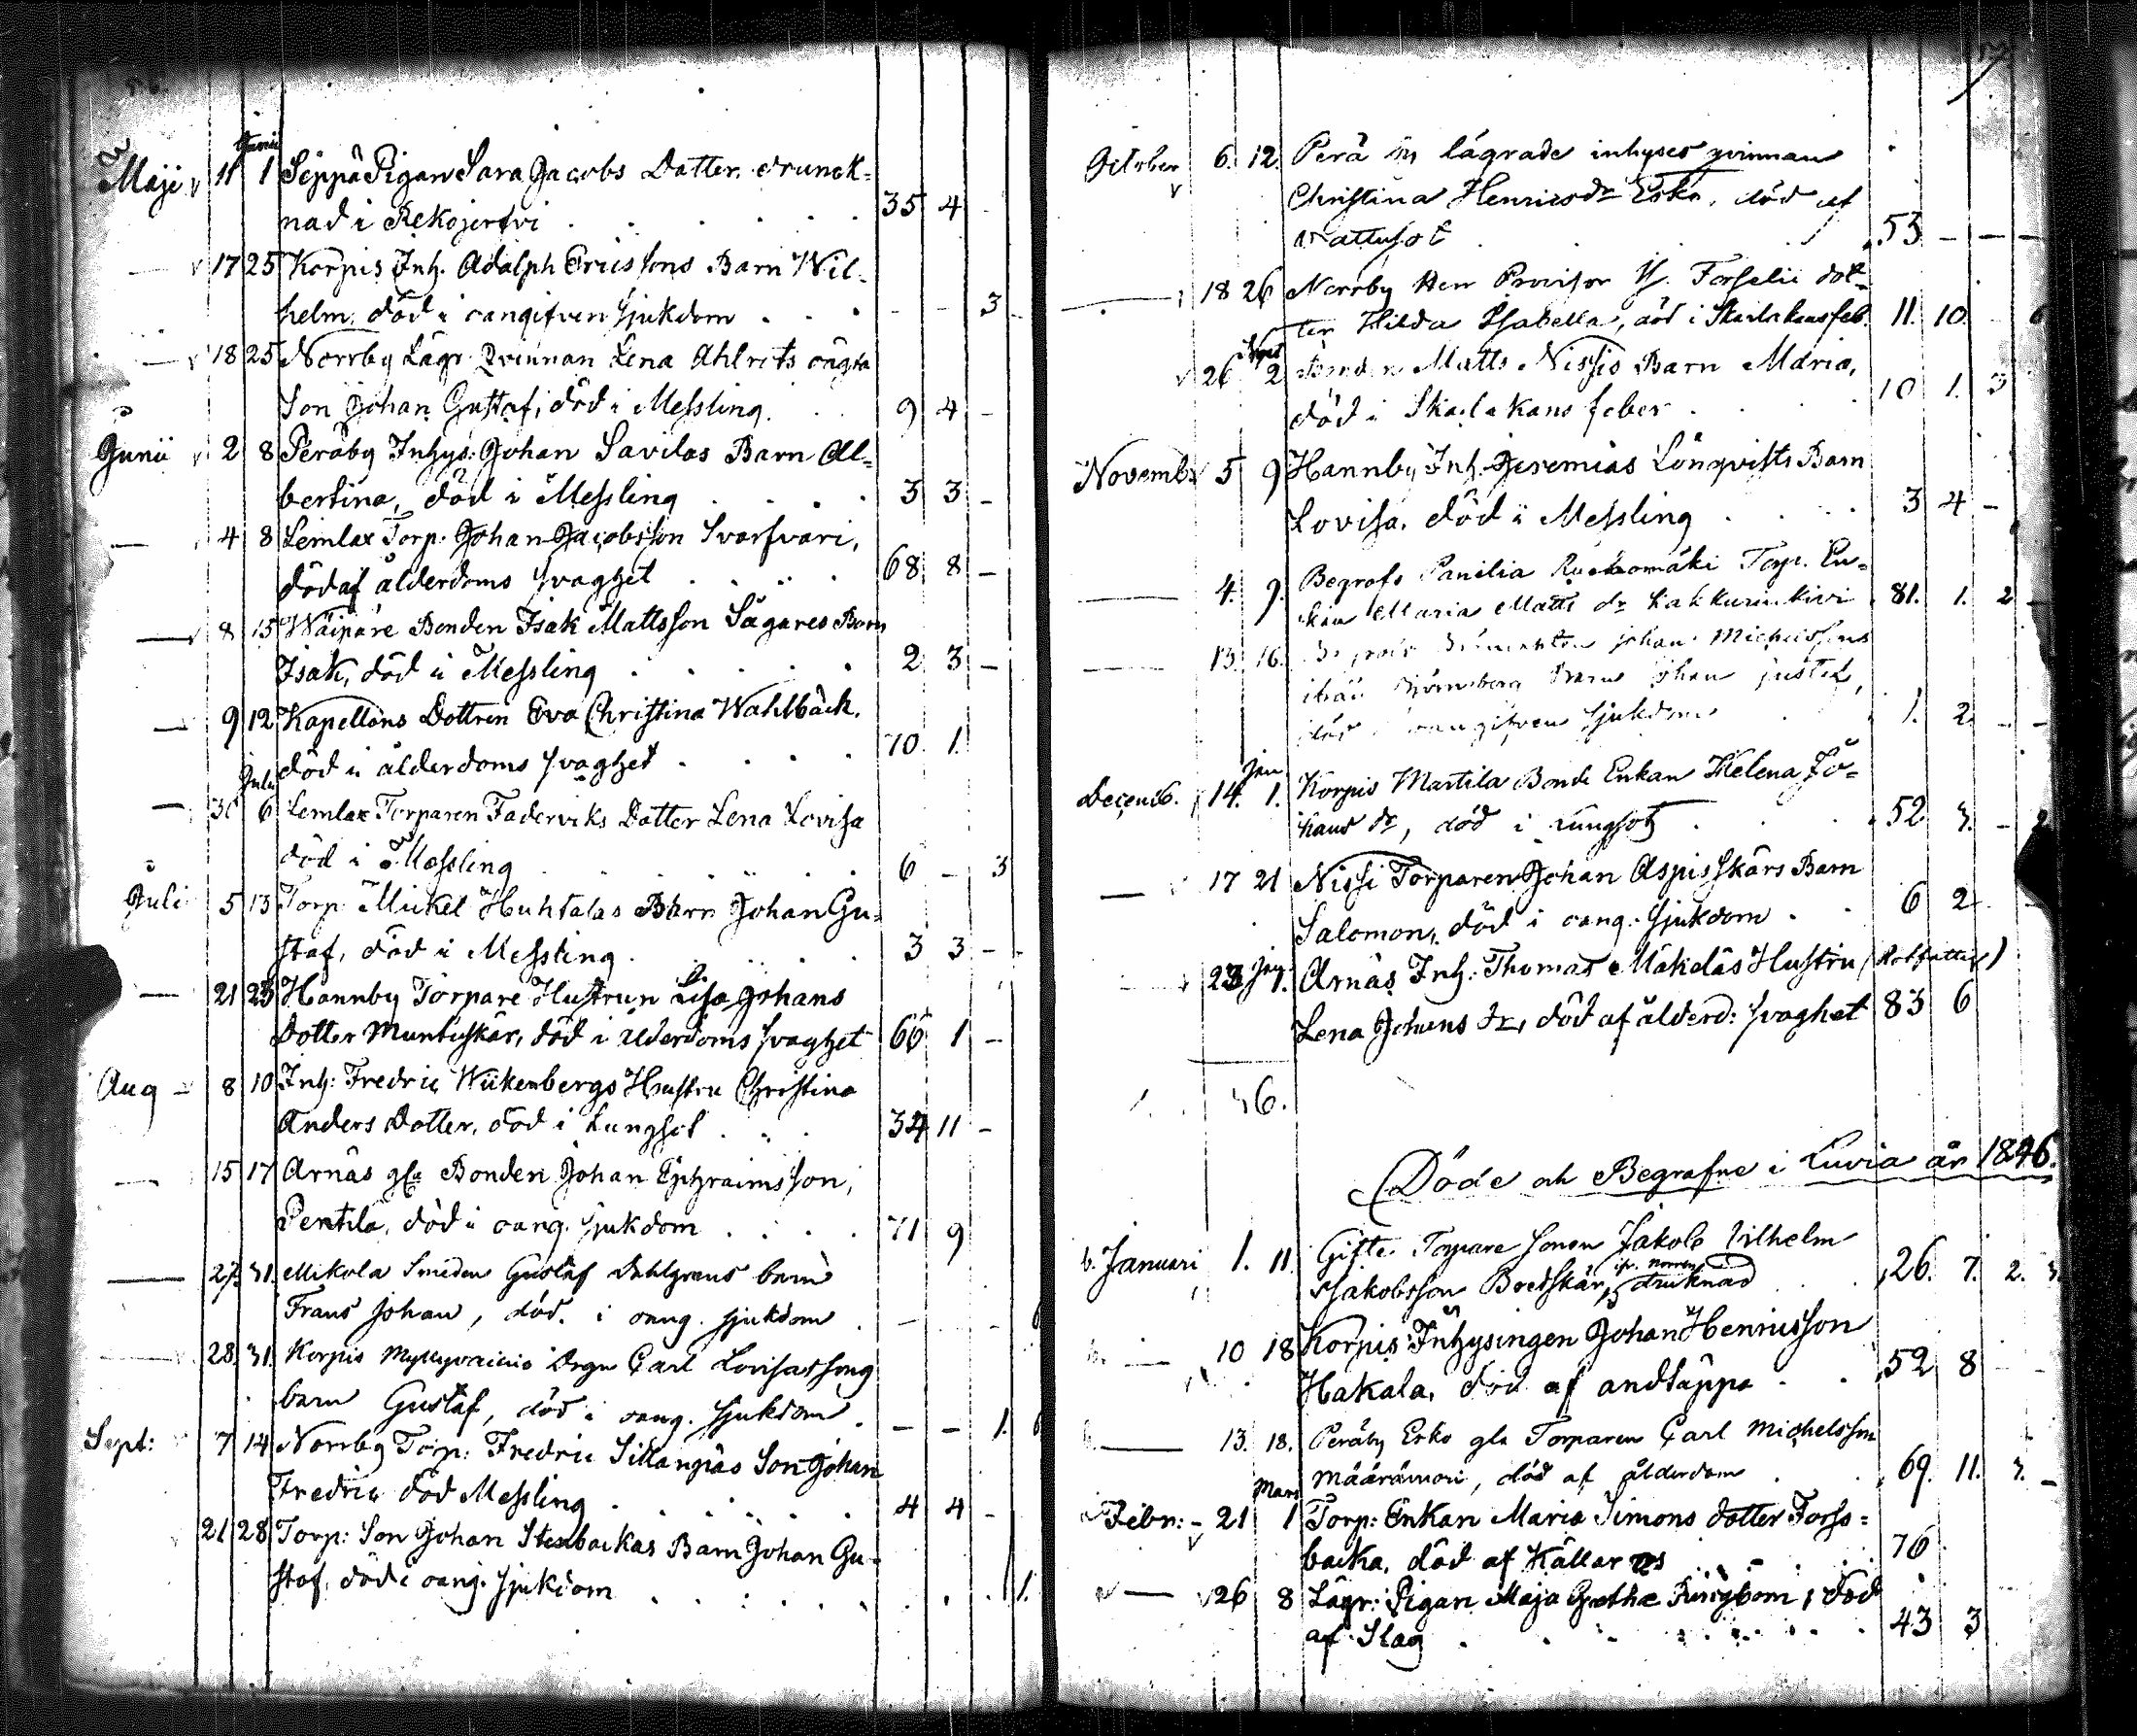 Junii
Maji 11 1 Seppä Pigan Sara Jacobs Dotter drunck=
nad i Rekojerfvi 35 4
— 17 25 Korpis Inh. Adolph Ericssons Barn Wil-
helm, död i oangifven sjukdom - - 3
— 18 25 Norrby Lägr. Qvinnan Lena Ahlrots oägta
Son Johan Gustaf, död i Messling. 9 4 -
Junii 2 8 Peräby Inhys: Johan Savilas Barn Al=
bertina, död i Messling 3 3 -
— 4 8 Lemlax Torp. Johan Jacobsson Svarfvari,
död af ålderdoms svaghet 68 8 -
— 8 15 Bonden Isak Mattsson Sägares Barn
Isak, död i Messling 2 3 -
— 9 12 Kapellans Dottren Eva Christina Wahlbäck.
död i ålderdoms svaghet 70 1
Julii
— 30 6 Lemlax Torparen Faderviks Dotter Lena Lovisa
död i Messling 6 - 3
Juli 5 13 Torp. Mickel Huhtalas Barn Johan Gu=
staf, död i Messling 3 3 -
— 21 23 Hannby Torpare Hustrun Lisa Johans
Dotter Muntiskär, död i ålderdoms svaghet 66 1 -
Aug — 8 10 Inh: Fredric Wikenbergs Hustru Christina
Anders Dotter, död i Lungsot 34 11 -
— 15 17 Arnäs gla Bonden Johan Ephraimsson,
Pentila, död i oang. sjukdom 71 9
— 27 31 Mikola Smeden Gustaf Dahlgrens barn
Frans Johan, död. i oang. sjukdom - - 6
— 28 31 Korpis Drgn Carl Lovisassons
barn Gustaf, död i oang. sjukdom. - - 1. 6
Sept: 7 14 Norrby Torp: Fredric Sillanpäs Son Johan
Fredric död Messling 4 4 -
21 28 Torp: Son Johan Stenbackas Barn Johan Gu-
staf, död i oang. sjukdom 1.
October 6. 12. Perä lägrade inhyses qvinnan
Christina Henricsdr Esko, död af
Vattusot 53 - - -
— 18 26 Norrby Herr Provisor Forselii dot-
ter Hilda Isabella, död i Skarlakansfeb. 11. 10. 6
Novr
26 2 Bonden Matts Nissis Barn Maria,
död i Skarlakans feber 10 1. 3
Novembr 5 9 Hannby Inh. Jeremias Lönqvists Barn
Lovisa, död i Messling 3 4 -
— 4. 9. Begrofs Panilia Torp. En=
kan Maria Matts dr 81. 1. 2 -
— 13. 16. Johan Michelssons
Björneborg Barn Johan
död i oangifven sjukdom 1. 2. - -
Jan
Decemb. 14. 1. Korpis Martila Bonde Enkan Helena Jo=
hans dr, död i Lungsot 52 3. -
— 17 21 Nissi Torparen Johan Aspisskärs Barn
Salomon, död i oang: sjukdom 6 2
— 23 Jan 1. Arnäs Inh: Thomas Mäkeläs Hustru (Rotfattig)
Lena Johans dr, död af ålderd: svaghet 83 6
36.
Döde och Begrafne i Luvia år 1846.
Januari 1. 11. Gifte Torpare Sonen Jakob Vilhelm
Jakobsson Bredskär, druknad 26. 7. 2. 3.
— 10 18 Korpis: Inhysingen Johan Henricsson
Hakala, död af andtäppa 52 8
— 13. 18. Peräby Esko gla Torparen Carl Michelsson
Määrämori, död af ålderdom 69. 11. 3. -
Mars
Febr: - 21 1 Torp: Enkan Maria Simons dotter Forss=
backa, död af Hållarns 76
— 26 8 Lägr: Pigan Maja Gretha Ringbom, död
af Slag 43 3